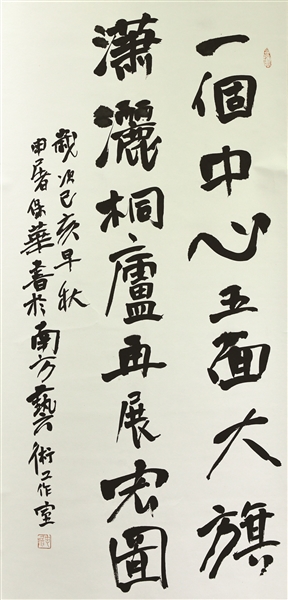 一個中心五面大旗
瀟灑桐廬再展宏圖
歲次己亥早秋
申屠保華書於南方藝術工作室